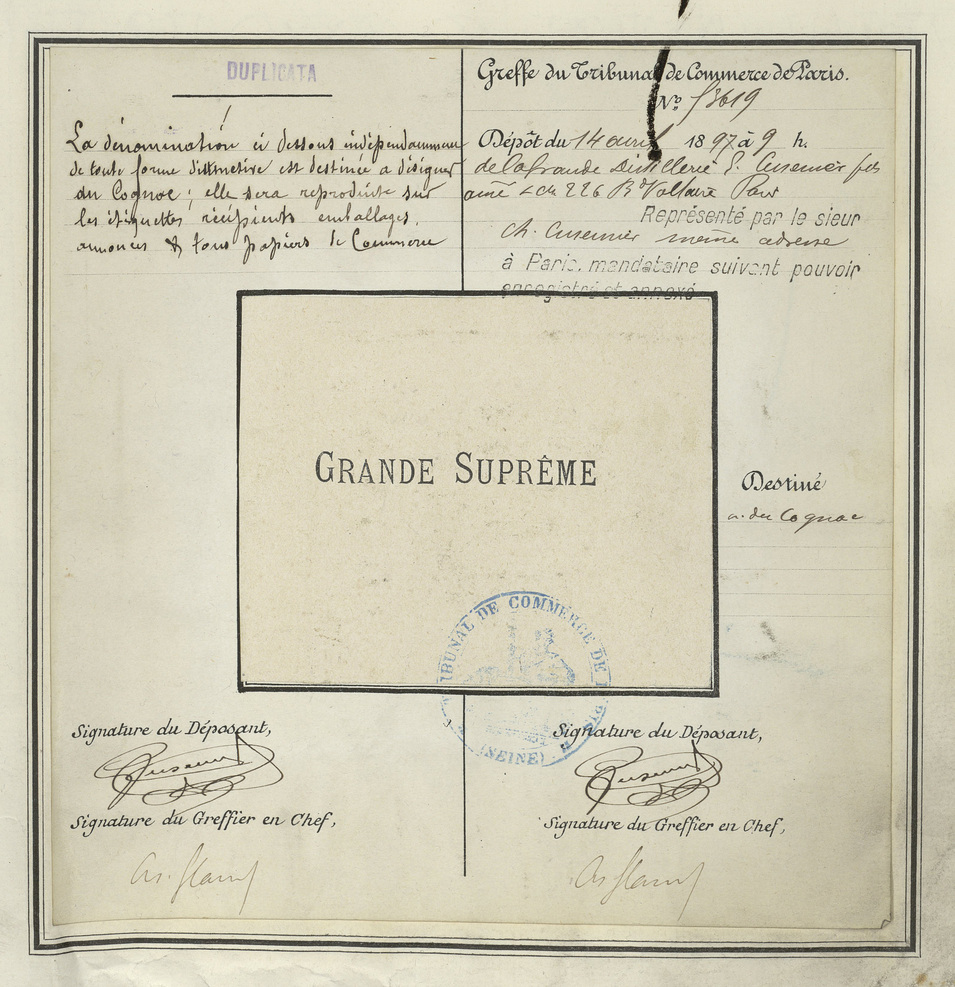 DUPLICATA
La dénomination ci dessous indépendamment
de toute forme distinctive est destinée a désigner
du Cognac ; elle sera reproduite sur
les étiquettes récipients emballages,
annonces & tous papiers de Commerce
Greffe du Tribunal de Commerce de Paris.
No 53619
Dépôt du 14 avril 1897 à 9 h.
de la Grande Distillerie E. Cusenier fils
ainé & cie 226 Bd Voltaire Paris
Représenté par le sieur
Ch. Cusenier même adresse
à Paris, mandataire suivant pouvoir
enregistré et annexé
GRANDE SUPRÊME
Destiné
a du Cognac
TRIBUNAL DE COMMERCE DE PARIS
(SEINE)
Signature du Déposant,
Cusenier
Signature du Greffier en Chef,
Signature du Déposant,
Cusenier
Signature du Greffier en Chef,